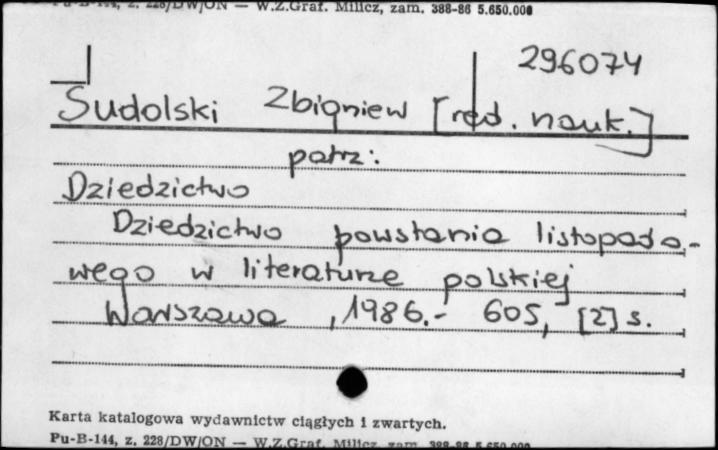 Pu-B-144, z. 228/DW/ON — W.Z.Graf. Milicz, zam. 388-86 5.650.000
296074
Sudolski Zbigniew [red. nauk.]
patrz:
Dziedzictwo
Dziedzictwo powstania listopado-
wego w literaturze polskiej
Warszawa, 1986.- 605, [2] s.
Karta katalogowa wydawnictw ciągłych i zwartych.
Pu-B-144, z. 228/DW/ON — W.Z.Graf. Milicz zam. 388-86 5.650.000